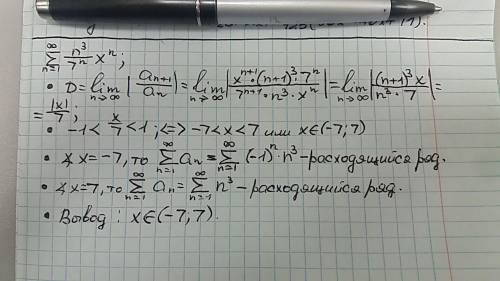 ∑_{n=1}^{∞} n³/7ⁿ xⁿ;
• D = lim_{n→∞} |a_{n+1}/a_n| = lim_{n→∞} |x^{n+1}·(n+1)³·7ⁿ / 7^{n+1}·n³·xⁿ| = lim_{n→∞} |(n+1)³x / n³·7| =
= |x|/7;
• -1 < x/7 < 1; <=> -7 < x < 7 или x∈(-7;7)
• ∢ x=-7, то ∑_{n=1}^{∞} a_n = ∑_{n=1}^{∞} (-1)ⁿ·n³ - расходящийся ряд.
• ∢ x=7, то ∑_{n=1}^{∞} a_n = ∑_{n=1}^{∞} n³ - расходящийся ряд.
• Вывод: x∈(-7;7).